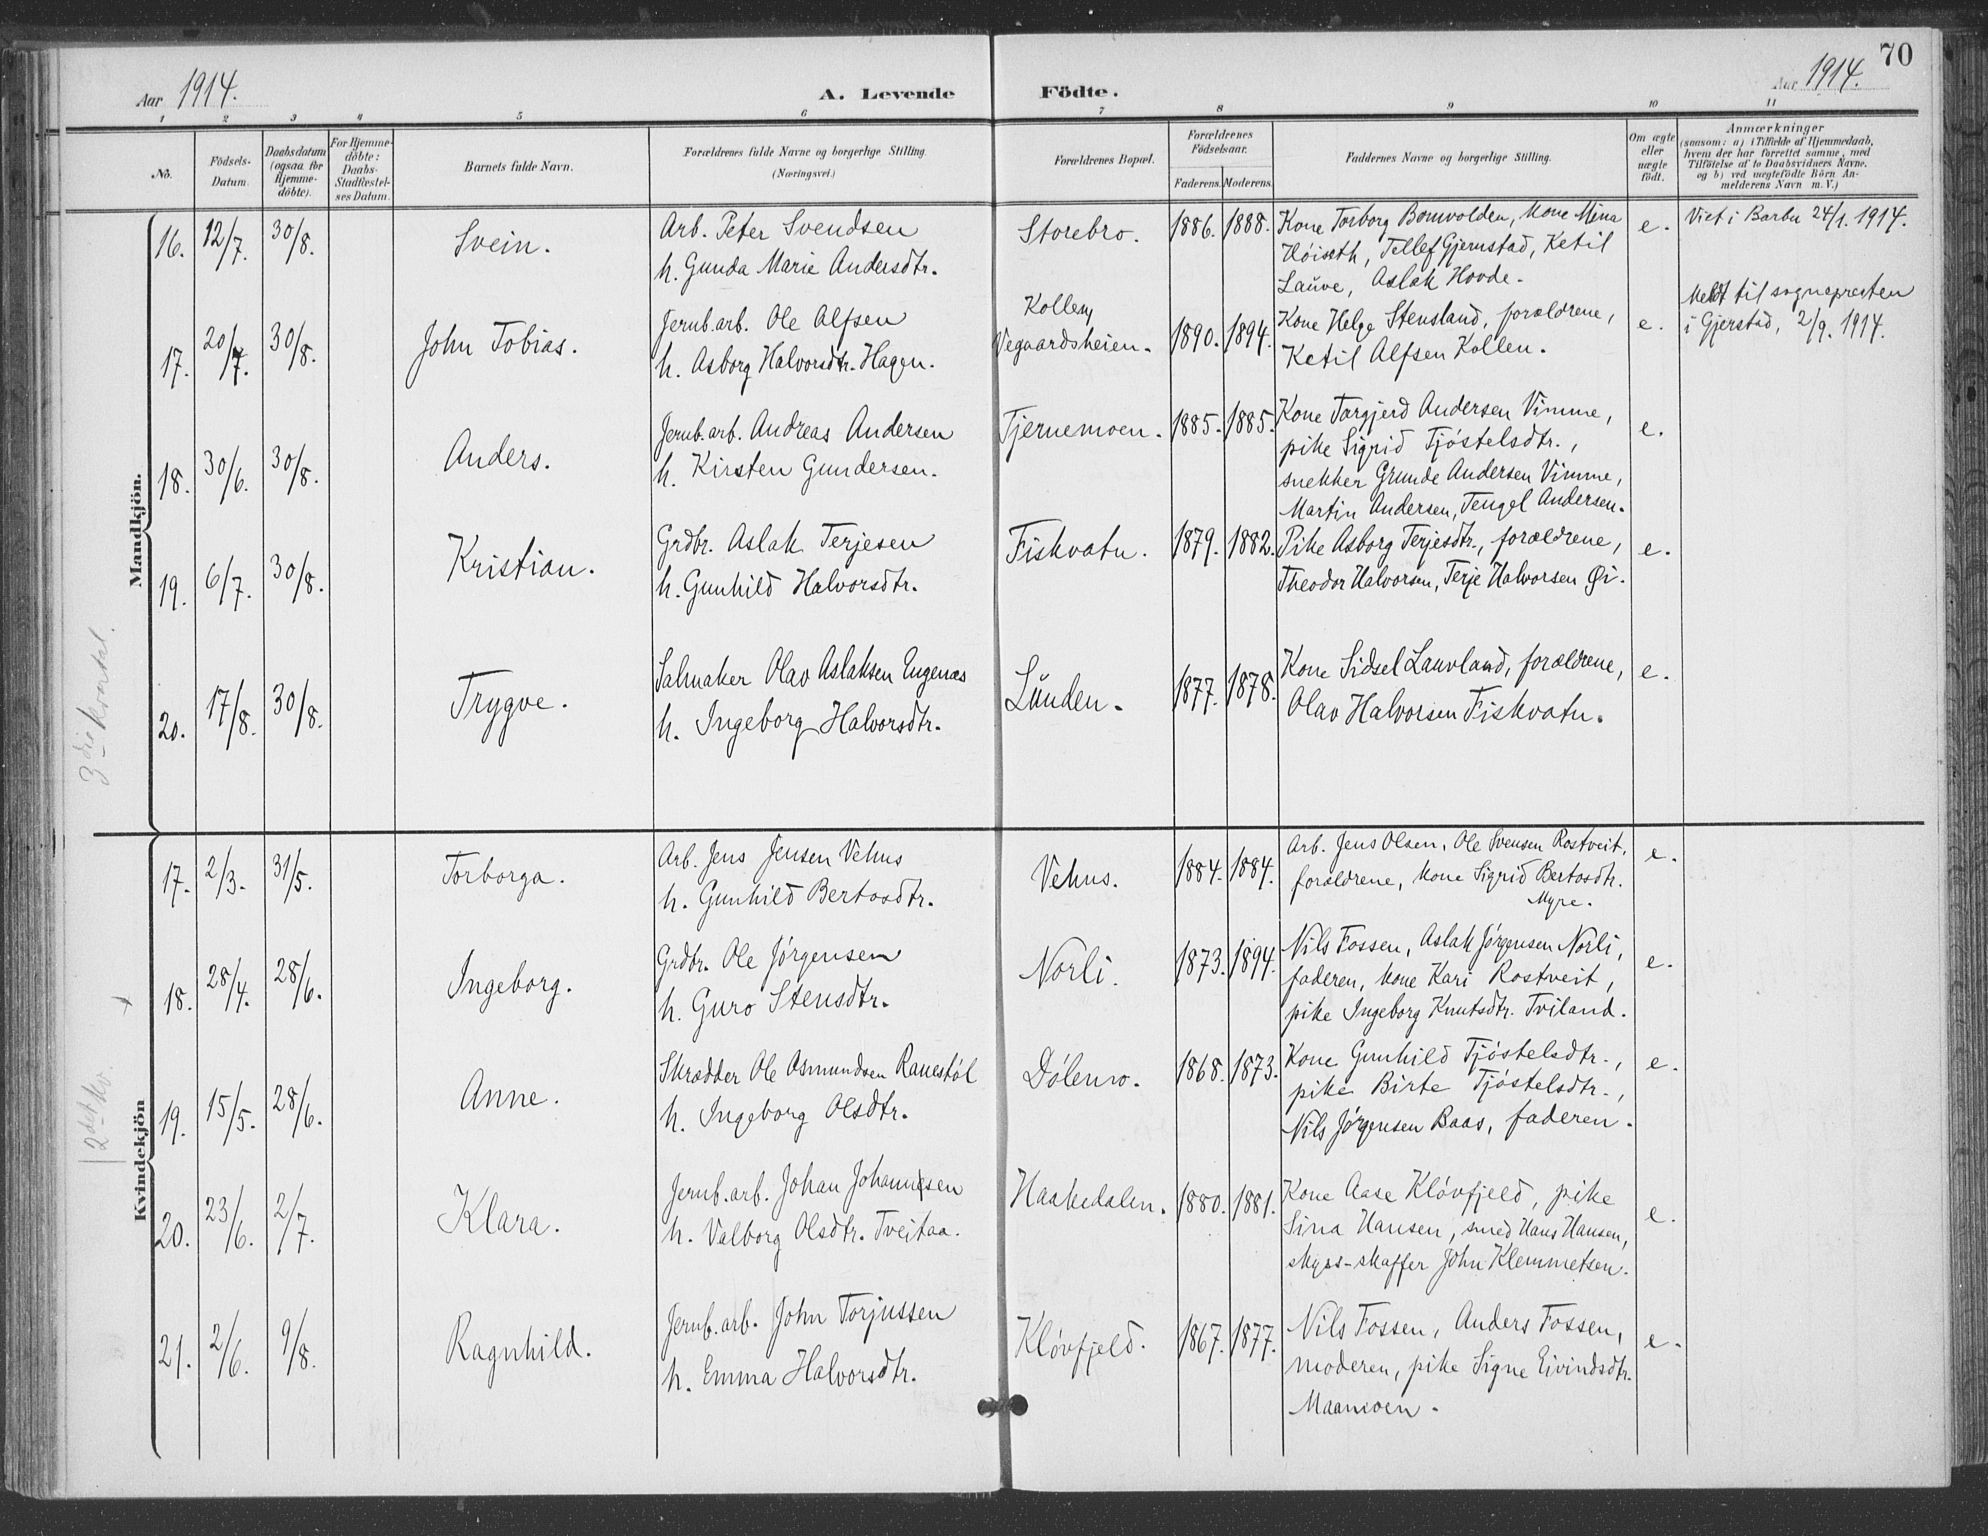 Aar 1914.
A. Levende Födte.
Aar 1914.
70
1 2 3 4 5 6 7 8 9 10 11
No.
Födsels-
Datum.
Daabsdatum
(ogsaa for
Hjemme-
döbte).
For Hjemme-
döbte:
Daabs-
Stadfæstel-
ses Datum.
Barnets fulde Navn.
Forældrenes fulde Navne og borgerlige Stilling.
(Næringsvei.)
Forældrenes Bopæl.
Forældrenes
Födselsaar.
Faderens. Moderens.
Faddernes Navne og borgerlige Stilling.
Om ægte
eller
uægte
födt.
Anmærkninger
(saasom: a) i Tilfælde af Hjemmedaab,
hvem der har forrettet samme, med
Tilföielse af to Daabsvidners Navne.
og b) ved uægtefödte Börn An-
melderens Navn m. V.)
Mandkjön.
3die kvartal.
16. 12/7. 30/8. Svein.
Arb. Peter Svendsen
h. Gunda Marie Andersdtr.
Storebro. 1886. 1888.
Kone Torborg Bomvolden, kone Mina
Høiseth, Tellef Gjernstad, Ketil
Lauve, Aslak Hovde.
e. Viet i Barbu 24/1. 1914.
17. 20/7. 30/8. John Tobias.
Jernb.arb. Ole Alfsen
h. Asborg Halvorsdtr. Hagen.
Kollen,
Vegaardsheien. 1890. 1894.
Kone Helge Stensland, forældrene,
Ketil Alfsen Kollen.
e. Meldt til sognepresten
i Gjerstad, 2/9. 1914.
18. 30/6. 30/8. Anders.
Jernb.arb. Andreas Andersen
h. Kirsten Gundersen.
Tjernemoen. 1885. 1885.
Kone Torgjerd Andersen Vimme,
pike Sigrid Tjöstelsdtr.,
snekker Grunde Andersen Vimme,
Martin Andersen, Tengel Andersen.
e.
19. 6/7. 30/8. Kristian.
Grdbr. Aslak Terjesen
h. Gunhild Halvorsdtr.
Fiskvatn. 1879. 1882.
Pike Asborg Terjesdtr., forældrene,
Theodor Halvorsen, Terje Halvorsen Øi.
e.
20. 17/8. 30/8. Trygve.
Salmaker Olav Aslaksen Engenæs
h. Ingeborg Halvorsdtr.
Lunden. 1877. 1878.
Kone Sidsel Lauvland, forældrene,
Olav Halvorsen Fiskvatn.
e.
Kvindekjön
2det kv.
17. 2/3. 31/5. Torborga.
Arb. Jens Jensen Vehus
h. Gunhild Bertosdtr.
Vehus. 1884. 1884.
Arb. Jens Olsen, Ole Svensen Rostveit,
forældrene, kone Sigrid Bertosdtr.
Myre.
e.
18. 28/4. 28/6. Ingeborg.
Grdbr. Ole Jørgensen
h. Guro Stensdtr.
Norli. 1873. 1894.
Nils Fossen, Aslak Jørgensen Norli,
faderen, kone Kari Rostveit,
pike Ingeborg Knutsdtr. Tviland.
e.
19. 15/5. 28/6. Anne.
Skrædder Ole Osmundsen Ranestöl
h. Ingeborg Olsdtr.
Dølemo. 1868. 1873.
Kone Gunhild Tjöstelsdtr.,
pike Birte Tjöstelsdtr.,
Nils Jørgensen Baas, faderen.
e.
20. 23/6. 2/7. Klara.
Jernb.arb. Johan Johannesen
h. Valborg Olsdtr. Tveitaa.
Haakedalen. 1880. 1881.
Kone Aase Kløvfjeld, pike
Sina Hansen, smed Hans Hansen,
skyss-skaffer John Klemmetsen.
e.
21. 2/6. 9/8. Ragnhild.
Jernb.arb. John Torjussen
h. Emma Halvorsdtr.
Kløvfjeld. 1867. 1877.
Nils Fossen, Anders Fossen,
moderen, pike Signe Eivindsdtr.
Maamoen.
e.